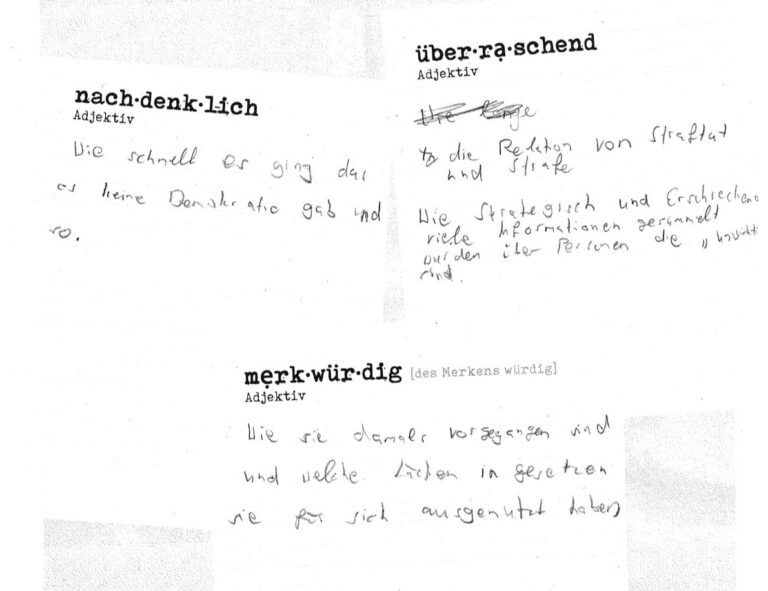 nach·denk·lich
Adjektiv
Wie schnell es ging das
es keine Demokratie gab und
so.
über·rạ·schend
Adjektiv
die Relation von Straftat
und Strafe
Wie Strategisch und Erschreckend
viele Informationen gesammelt
wurden über Personen die
sind.
mẹrk·wür·dig [des Merkens würdig]
Adjektiv
Wie sie damals vorgegangen sind
und welche Lücken in gesetzen
sie für sich ausgenutzt haben